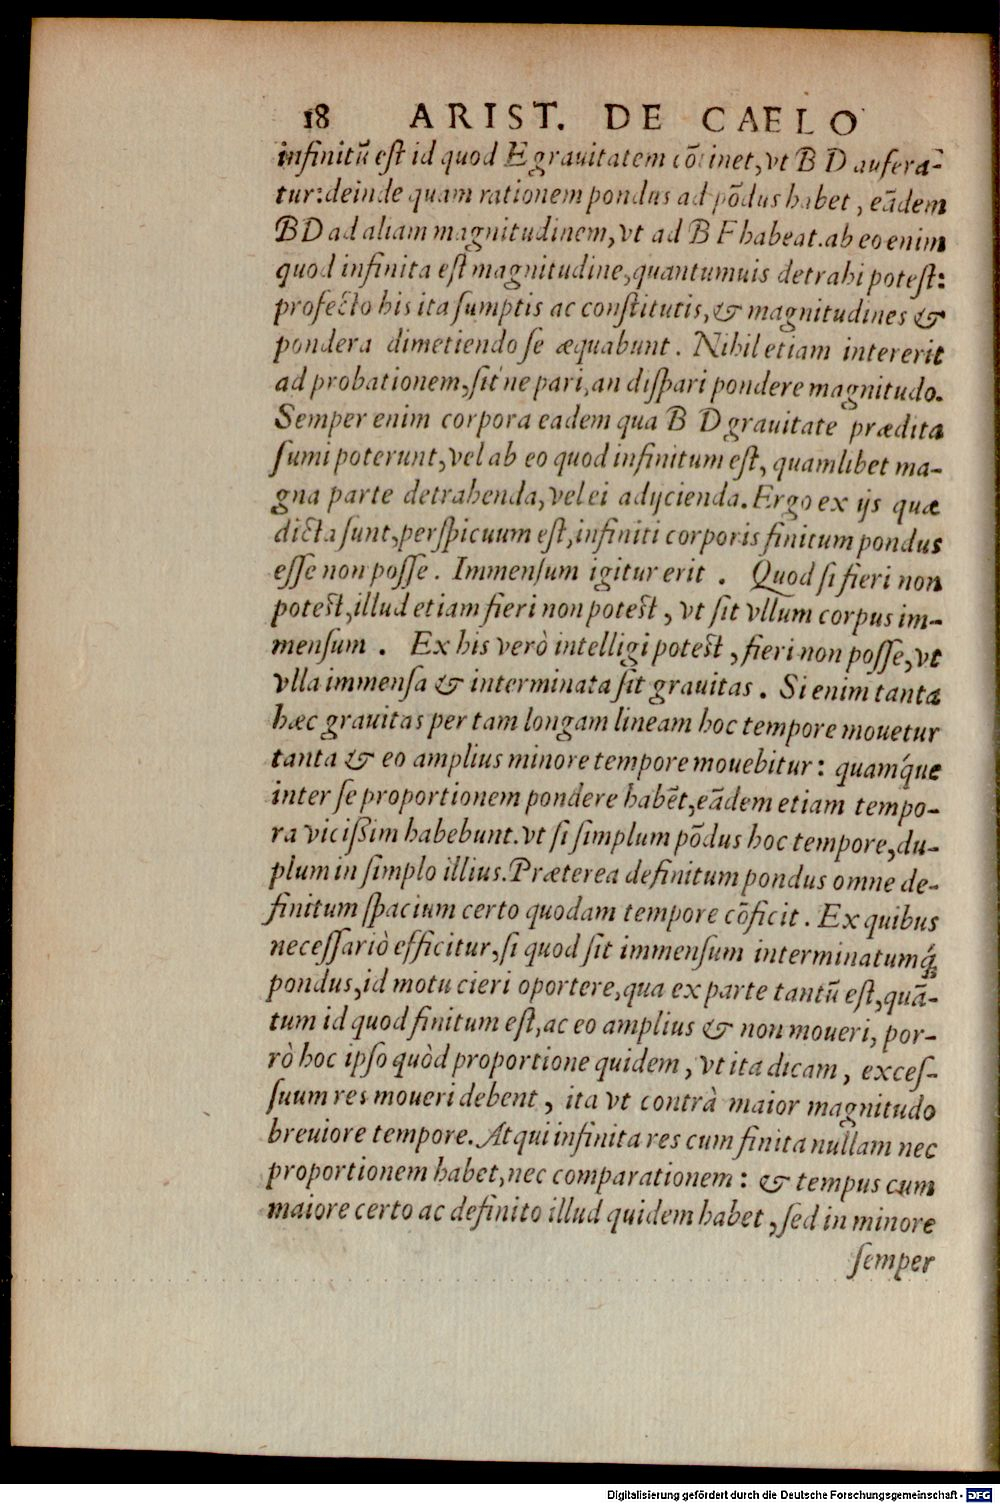 18 ARIST. DE CAELO
infinitũ est id quod E grauitatem cõtinet, vt B D aufera-
tur: deinde quam rationem pondus ad põdus habet, eãdem
B D ad aliam magnitudinem, vt ad B F habeat. ab eo enim
quod infinita est magnitudine, quantumuis detrahi potest:
profecto his ita sumptis ac constitutis, & magnitudines &
pondera dimetiendo se æquabunt. Nihil etiam intererit
ad probationem, sit ne pari, an dispari pondere magnitudo.
Semper enim corpora eadem qua B D grauitate prædita
sumi poterunt, vel ab eo quod infinitum est, quamlibet ma-
gna parte detrahenda, vel ei adijcienda. Ergo ex ijs quæ
dicta sunt, perspicuum est, infiniti corporis finitum pondus
esse non posse. Immensum igitur erit. Quod si fieri non
potest, illud etiam fieri non potest, vt sit vllum corpus im-
mensum. Ex his verò intelligi potest, fieri non posse, vt
vlla immensa & interminata sit grauitas. Si enim tanta
hæc grauitas per tam longam lineam hoc tempore mouetur
tanta & eo amplius minore tempore mouebitur: quamq́ue
inter se proportionem pondere habẽt, eãdem etiam tempo-
ra vicißim habebunt. vt si simplum põdus hoc tempore, du-
plum in simplo illius. Præterea definitum pondus omne de-
finitum spacium certo quodam tempore cõficit. Ex quibus
necessariò efficitur, si quod sit immensum interminatumq́;
pondus, id motu cieri oportere, qua ex parte tantũ est, quã-
tum id quod finitum est, ac eo amplius & non moueri, por-
rò hoc ipso quòd proportione quidem, vt ita dicam, exces-
suum res moueri debent, ita vt contrà maior magnitudo
breuiore tempore. Atqui infinita res cum finita nullam nec
proportionem habet, nec comparationem: & tempus cum
maiore certo ac definito illud quidem habet, sed in minore
semper
Digitalisierung gefördert durch die Deutsche Forschungsgemeinschaft - DFG